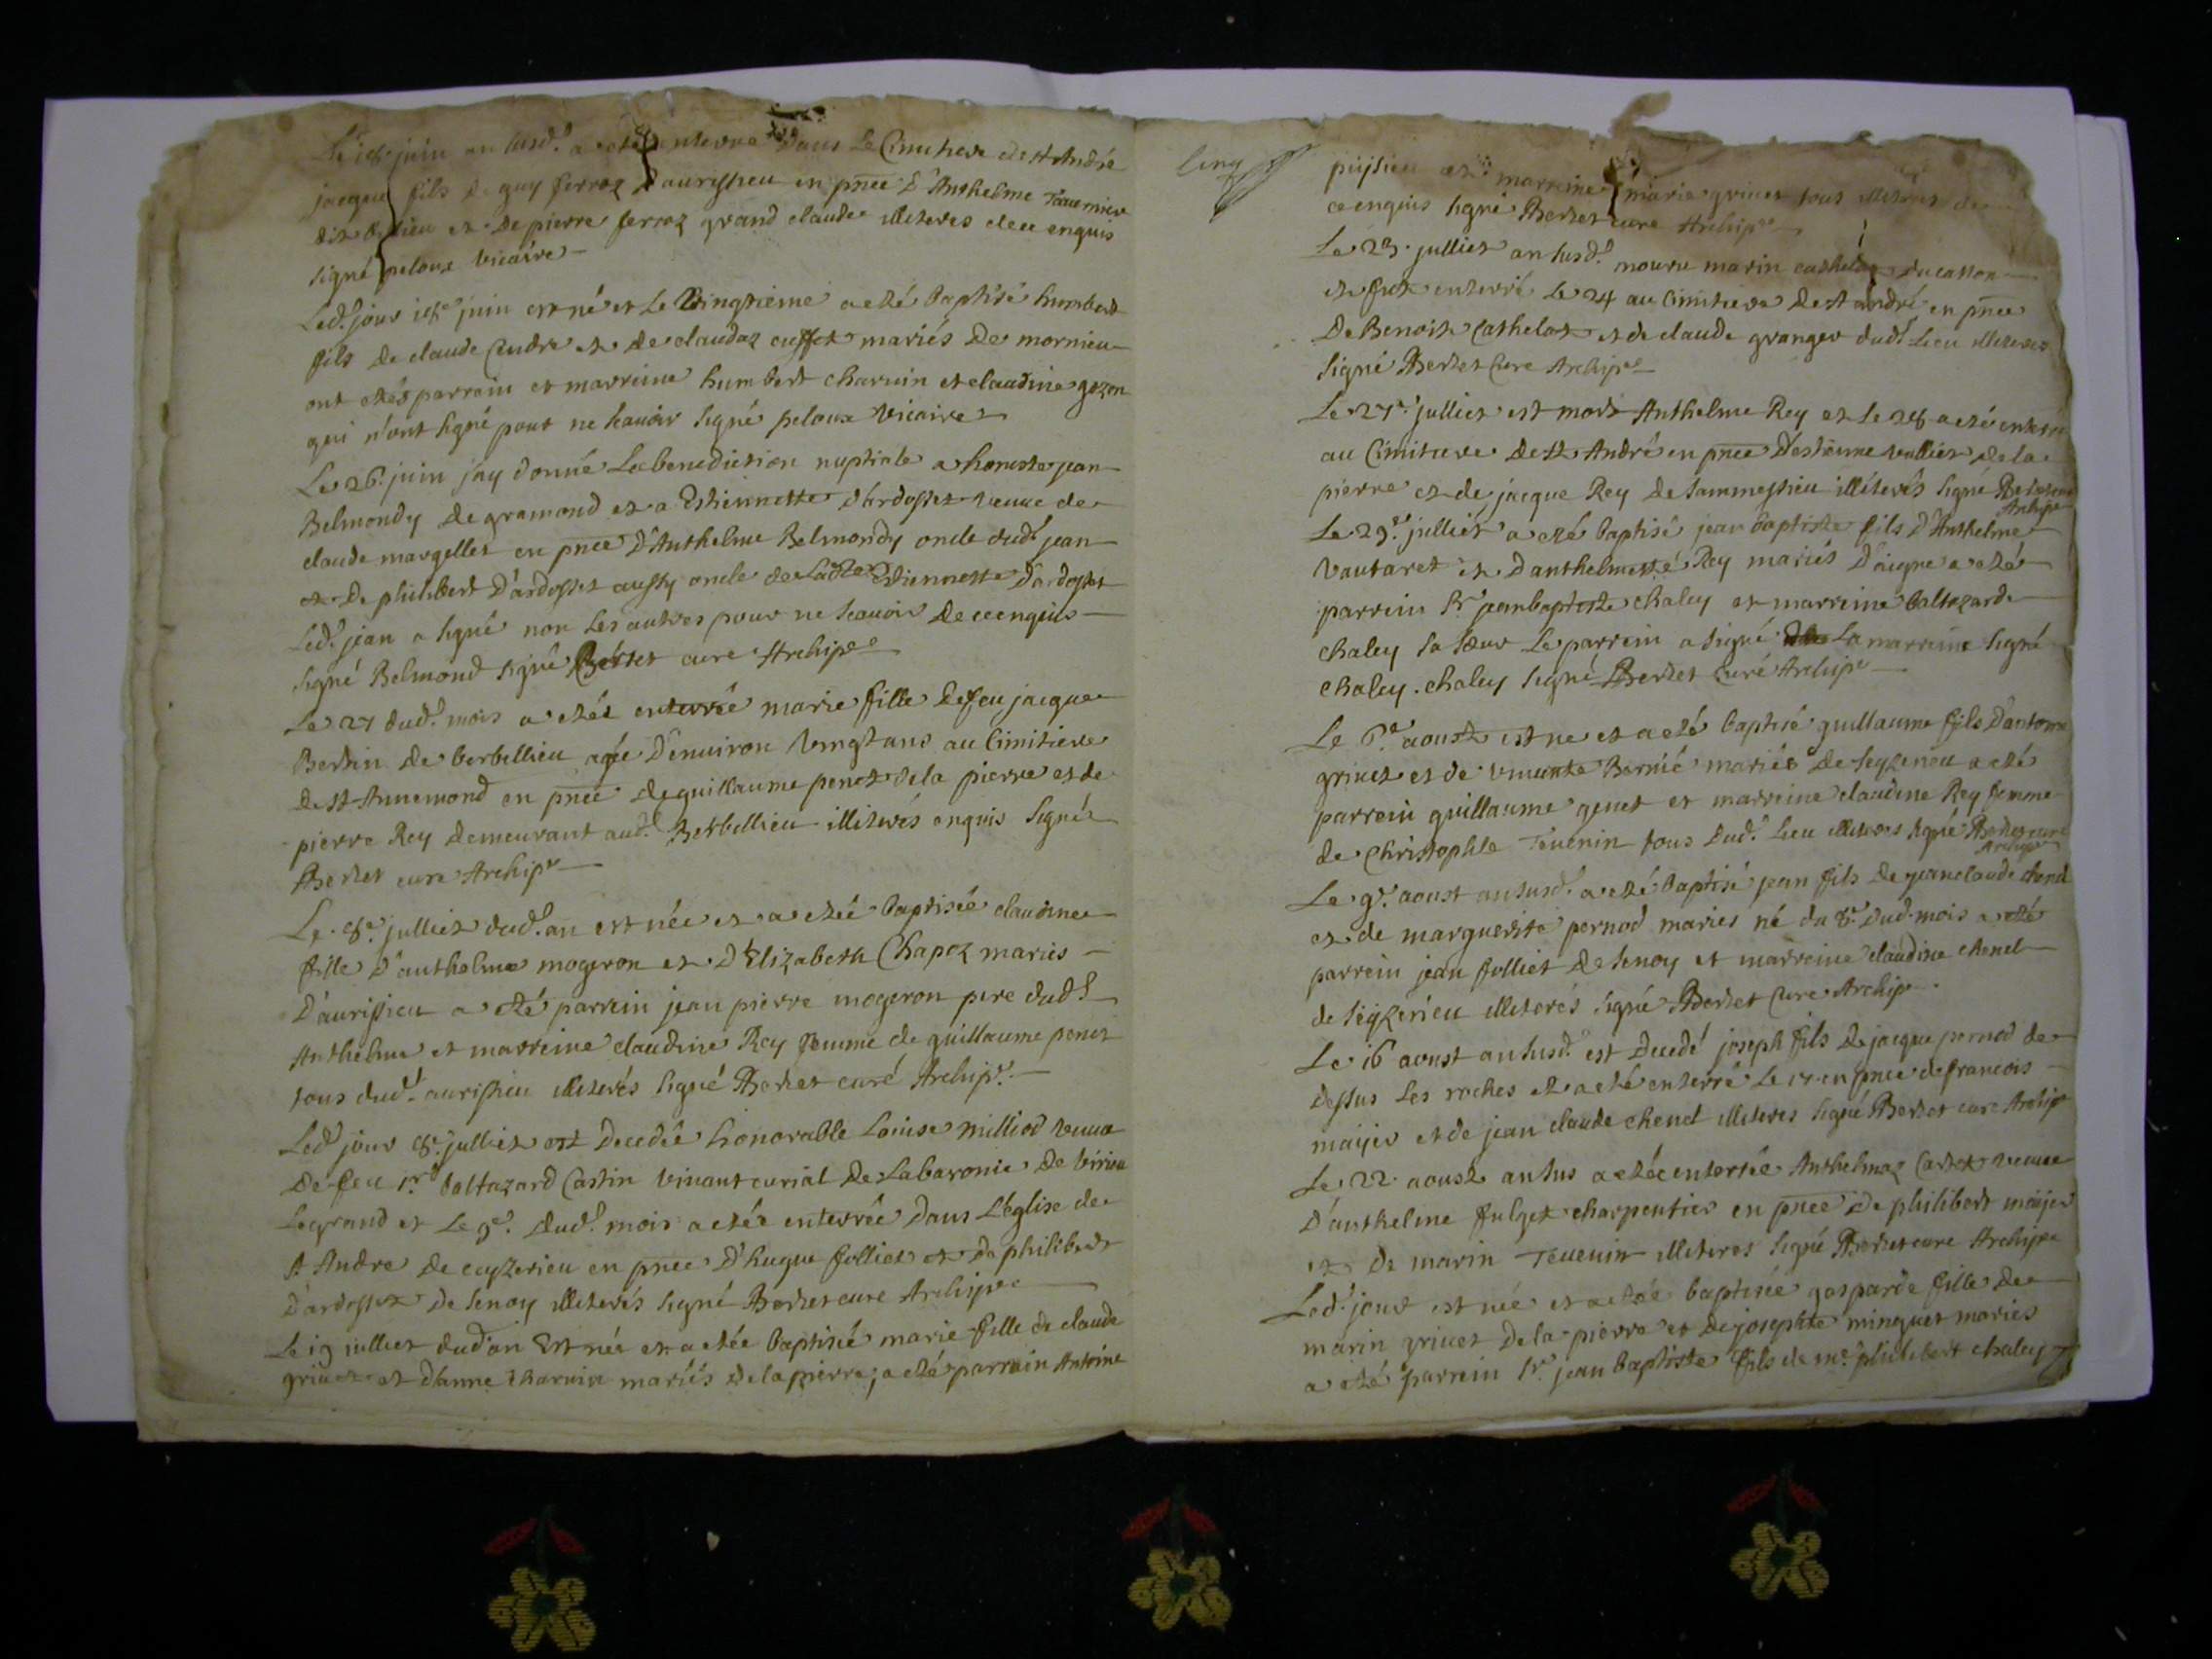 Le 18e juin an susd. a esté enterré dans Le Cimitiere de st André
jacque fils De guy ferroz D'aurissieu en pnce D'Anthelme
dit et De pierre ferroz grand claude illiteres de ce enquis
signé peloux vicaire
Led. jour 18e juin est né et Le Vingtieme a esté baptisé humbert
fils De claude Cudre et De claudaz cusset mariés De mornieu
ont estés parrein et marreine humbert charuin et claudine gozon
qui n'ont signé pour ne scauoir signé peloux vicaire
Le 26. juin j'ay donné La benediction nuptiale a honeste jean
Belmondy De gramond et a Estiennette d'Ardosset veuue de
claude margellet en pnce D'Anthelme Belmondy oncle dud. jean
et De philibert D'ardosset aussy oncle de Ladte Estiennette D'ardosset
Led. jean a signé non Les autres pour ne scauoir De ce enquis
signé Belmond signé Bertet cure Archipe
Le 27 dud. mois a estéé enterrée marie fille De feu jacque
Bertin De berbellieu agée D'enuiron Vingt ans au Cimitiere
De st Annemond en pnce de guillaume penet De la pierre et de
pierre Rey demeurant aud. Berbellieu illiterés enquis signé
Bertet cure Archipe
Le 8e. julliet dud. an est née et a estéé baptisée claudine
fille D'anthelme mogeron et D'Elizabeth Chapoz mariés
D'aurissieu a esté parrein jean pierre mogeron pere dud.
Anthelme et marreine claudine Rey femme de guillaume penet
tous dud. aurissieu illiterés signé Bertet curé Archipe.
Led. jour 8e. julliet est Decedée honorable Louise milliod veuue
De feu sr baltazard Castin viuant curial De La baronie De virieu
Le grand et Le 9e. dud. mois a estéé enterrée Dans L'eglise de
st Andre De ceyzerieu en pnce D'hugue folliet et De philibert
D'ardosset De senoy illiterés signé Bertet cure Archipe
Le 19 julliet dud. an Est née et a estée baptisée marie fille de claude
griuet et D'anne charuin mariés De la pierre; a esté parrain Antoine
Cinq
puysieu et marreine marie griuet tous illiteres de
ce enquis signé Bertet cure Archipe
Le 23. julliet an susd. mourut marin cathelot du catton
et fut enterré Le 24 au Cimitiere De st André en pnce
De Benoist Cathelot et de claude granger dud. Lieu illiteres
signé Bertet Cure Archipe
Le 27e. julliet est mort Anthelme Rey et Le 28 a esté enterré
au Cimitiere De st André en pnce D'estienne vulliet de la
pierre et de jacque Rey De sammessieu illiterés signé Bertet cure
Archipe
Le 29e. julliet a esté baptisé jean baptiste fils D'Anthelme
Vautaret et D'anthelmette Rey mariés D'aigne a esté
parrein sr jean baptiste chaley et marreine baltazarde
chaley sa sœur Le parrein a signé La marreine signé
chaley. chaley signé Bertet Curé Archipe
Le 6e aoust est né et a esté baptisé guillaume fils D'antoine
griuet et de Vincente Bernié mariés De seyzerieu a esté
parrein guillaume genet et marreine claudine Rey femme
de Christophle Teuenin tous Dud. Lieu illiteres signé Bertet cure
Archipe
Le 9e. aoust an susd. a esté baptisé jean fils De jean claude chenel
et de marguerite pernod mariés né du 8e. dud. mois a esté
parrein jean folliet De senoy et marreine claudine chenel
de seyzerieu illiterés signé Bertet Cure Archipe.
Le 16 aoust an susd. est Decedé joseph fils De jacque pernod de
dessus Les roches et a esté enterré Le 17 en pnce de francois
maijer et de jean claude chenel illiteres signé Bertet cure Archipe
Le 22 aoust an sus a estée enterrée Anthelmaz Cartet veuue
D'anthelme fulget charpentier en pnce De philibert maijer
et De marin Teuenin illiteres signé Bertet cure Archipe
Led. jour est née et a estéé baptisée gasparde fille De
marin griuet De la pierre et De josephte minguet mariés
a esté parrein sr. jean baptiste fils de me. philibert chaley